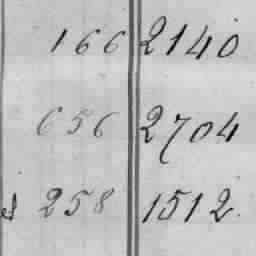 166 2140
656 2704
258 1512